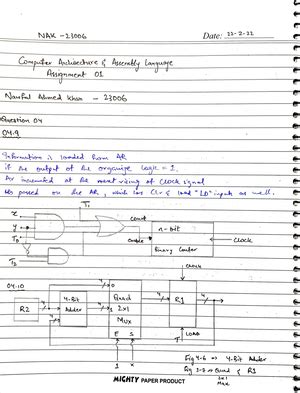 NAK - 23006
Date: 22-2-22
Computer Architecture & Assembly Language
Assignment 01
Naufal Ahmed Khan - 23006
Question 04
04.9
Information is loaded from AR
if the output of the organize logic = 1.
AR incremented at the next rising of clock signal
passed on the AR, which has Clr & load "LD" inputs as well.
T1
x
y
count
n-bit
T3
enable
Clock
Binary Counter
T2
clock
04.10
4
R2
4-Bit
Adder
Quad
2x1
Mux
0
1
R1
T
LOAD
E S
1 x
Fig 4-6 => 4-Bit Adder
Quad
R1
2x1
Mux
MIGHTY PAPER PRODUCT